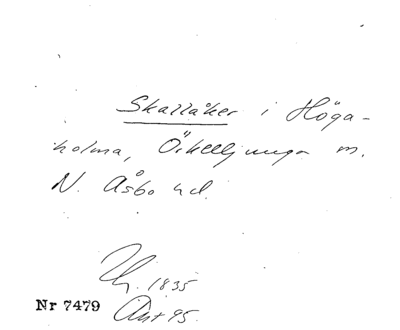 Skallåker i Höga-
holma, Örkelljunga m.
N. Åsbo hd.
1835
Nr 7479
Akt 95.